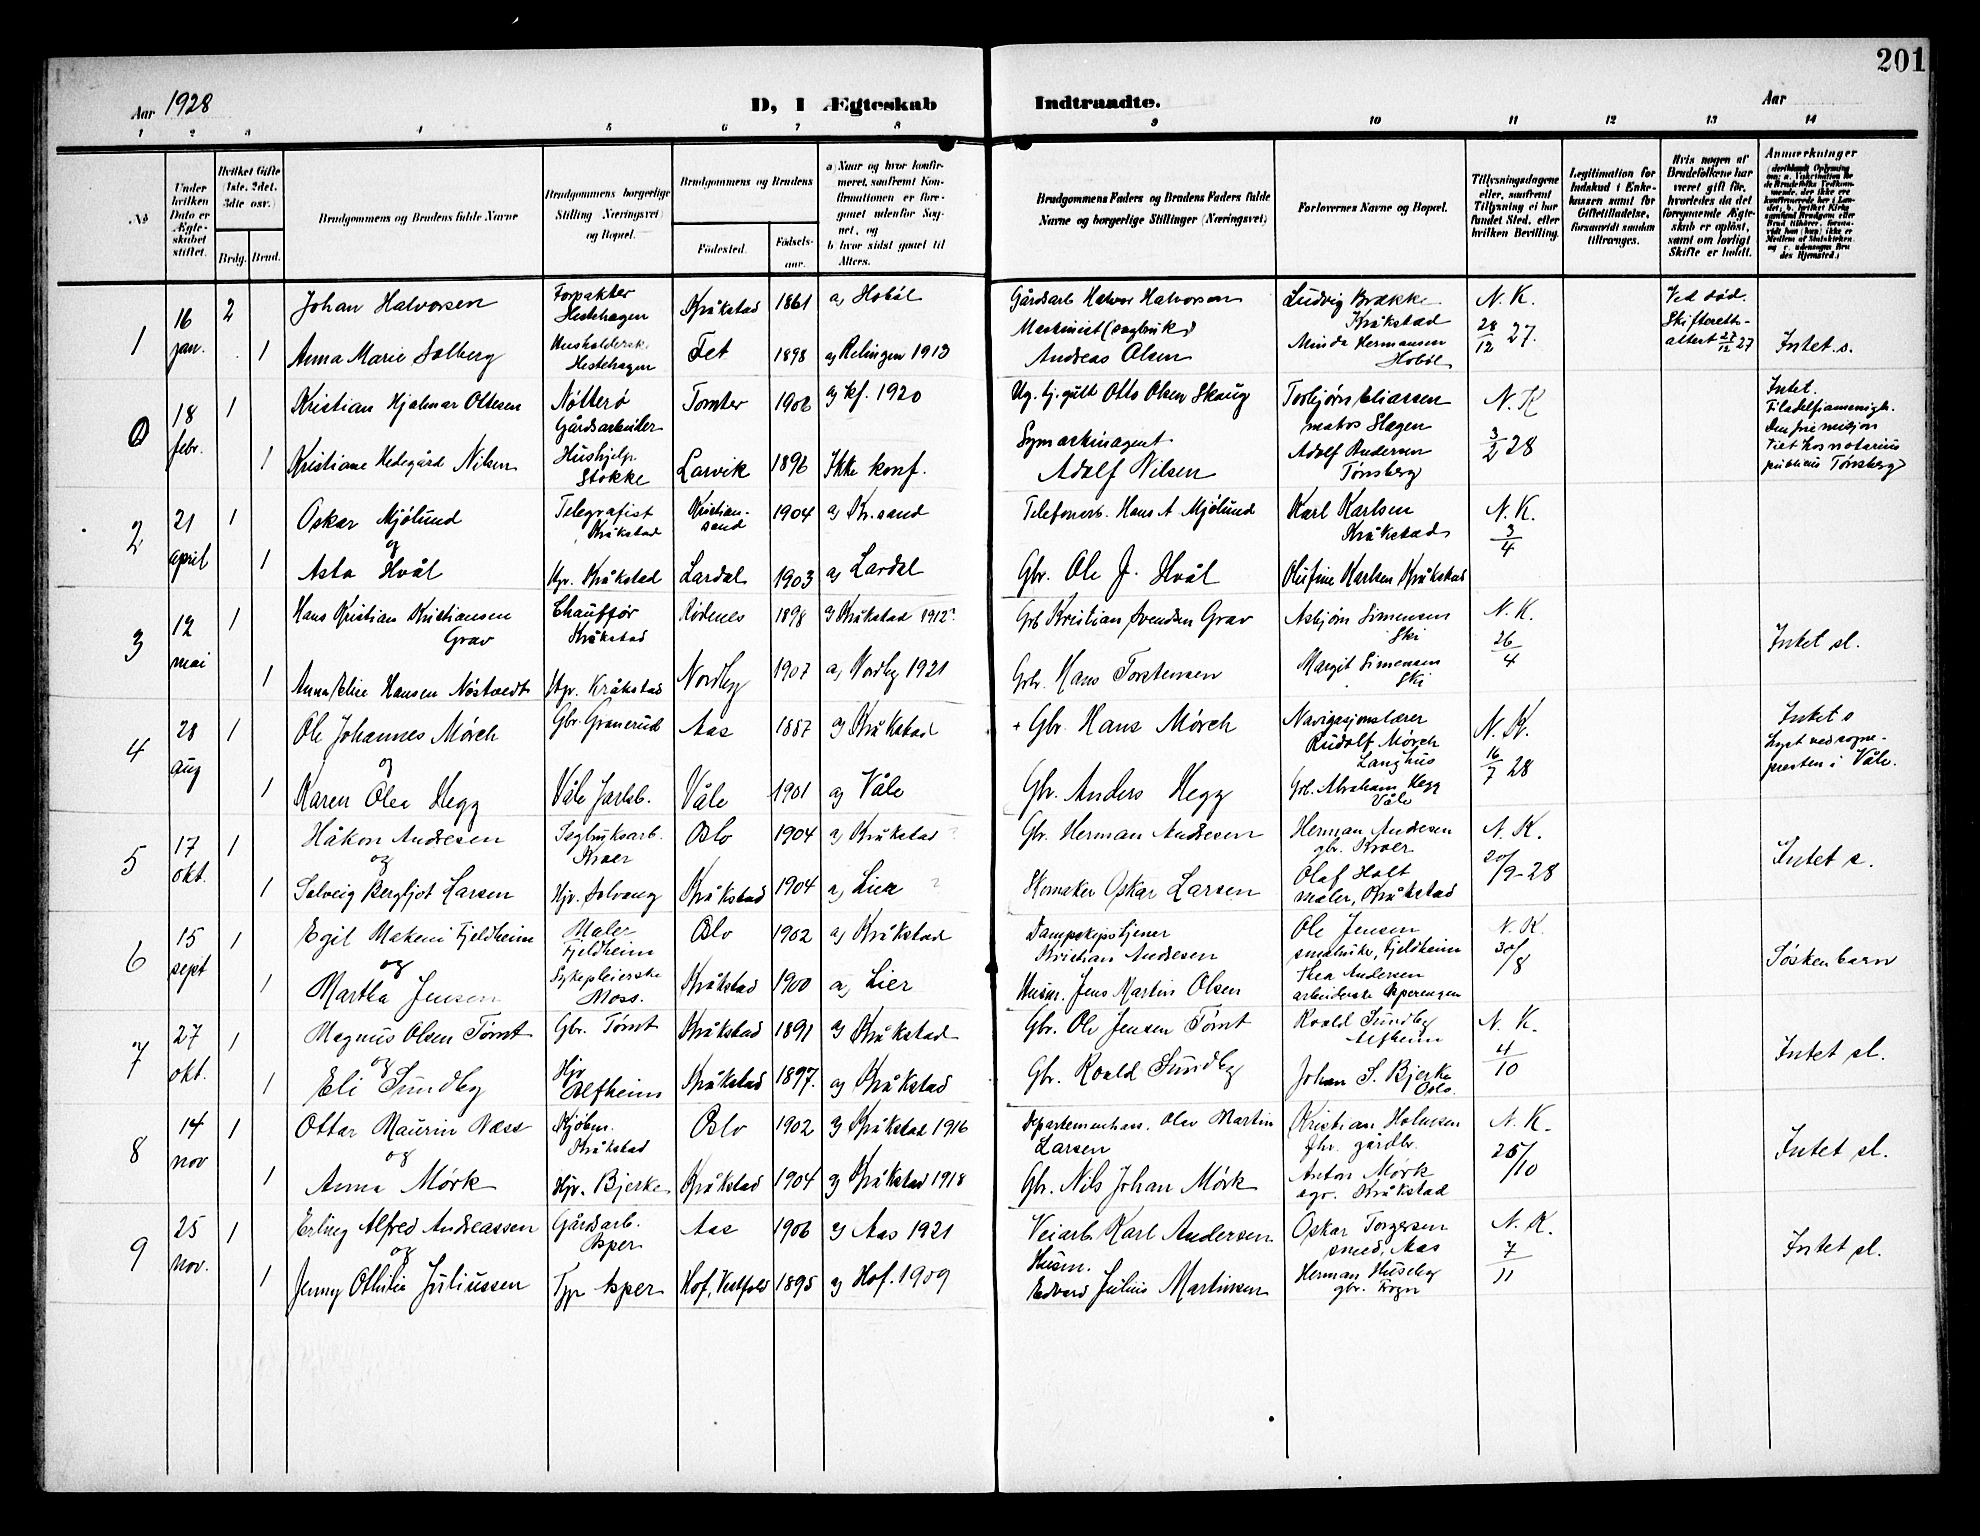 201
Aar 1928
D, I Ægteskab Indtraadte.
Aar
1 2 3 4 5 6 7 8 9 10 11 12 13 14
No
Under hvilken Dato er Ægteskabet stiftet.
Hvilket Gifte (1ste, 2det, 3die osv.)
Brdg. Brud.
Brudgommens og Brudens fulde Navne
Brudgommens borgerlige Stilling (Næringsvei) og Bopæl.
Brudgommens og Brudens
Fødested. Fødsels-aar.
a) Naar og hvor konfirmeret, saafremt Konfirmationen er foregaaet udenfor Sognet, og
b) hvor sidst gaaet til Alters.
Brudgommens Faders og Brudens Faders fulde Navne og borgerlige Stillinger (Næringsvei)
Forlovernes Navne og Bopæl.
Tillysningsdagene eller, saafremt Tillysning ei har fundet Sted, efter hvilken Bevilling.
Legitimation for Indskud i Enkekassen samt for Giftetilladelse, forsaavidt saadan tiltrænges.
Hvis nogen af Brudefolkene har været gift før, hvorledes da det foregaaende Ægteskab er opløst, samt om lovligt Skifte er holdt.
Anmerkninger
1 16 jan. 2 Johan Halvorsen Forpakter Hestehagen Kråkstad 1861 a) Hobøl Gårdsarb Halvor Halvorsen Ludvig Brække Kråkstad N. K. 28/12 27. Ved død. Skifteretts-attest 27/12 27
1 Anna Marie Solberg Husholdersk. Hestehagen Fet 1898 a) Relingen 1913 Maskinist (sagbruk) Andreas Olsen Minda Hermansen Hobøl Intet s.
0 18 febr. 1 Kristian Hjalmar Ottesen Nøtterø Gårdsarbeider Tomter 1906 a) kf. 1920 Otto Olsen Skaug Torbjørn Eliassen matros Slagen N. K. 3/2 28 Intet. Filadelfiamenigh. Den frie misjon Viet hos notarius publicus Tønsberg
1 Kristiane Hedegård Nilsen Hushjelp Stokke Larvik 1896 Ikke konf. Symaskinagent Adolf Nilsen Adolf Andersen Tønsberg
2 21 april 1 Oskar Mjølund Telegrafist Kråkstad Kristiansand 1904 a) Kr.sand Telefonarb. Hans A Mjølund Karl Karlsen Kråkstad N. K. 3/4
og
1 Asta Hvål Hjv. Kråkstad Lardal 1903 a) Lardal Gbr. Ole J. Hvål Olufine Karlsen Kråkstad
3 12 mai 1 Hans Kristian Kristiansen Grav Chauffør Kråkstad Rødenes 1898 a) Kråkstad 1912? Grb Kristian Svendsen Grav Asbjørn Simensen Ski N. K. 26/4 Intet sl.
1 Anna Elise Hansen Nøstvedt Hjv. Kråkstad Nordby 1907 a) Nordby 1921 Grb. Hans Torstensen Margit Simensen Ski
4 28 aug 1 Ole Johannes Mørch Gbr. Granerud Aas 1887 a) Kråkstad + Gbr. Hans Mørch Navigasjonslærer Rudolf Mørch Langhus N. K. 16/7 28 Intet s Lyst ved sogne-presten i Våle.
og
1 Karen Olea Hegg Våle Jarlsb. Våle 1901 a) Våle Gbr. Anders Hegg Grb. Abraham Hegg Våle
5 17 okt. 1 Håkon Andresen Sagbruksarb. Kroer Oslo 1904 a) Kråkstad ? Gbr. Herman Andresen Herman Andresen gbr. Kroer N. K. 20/9-28 Intet s.
og
1 Solveig Bergljot Larsen Hjv. Solvang Kråkstad 1904 a) Lier ? Skomaker Oskar Larsen Olaf Holt maler, Kråkstad
6 15 sept 1 Egil Makeni Fjeldheim Maler Fjeldheim Oslo 1902 a) Kråkstad Dampskipstjener Kristian Andresen Ole Jensen Fjeldheim N. K. 30/8 Søskenbarn
og
1 Martha Jensen Sykepleierske Moss. Kråkstad 1900 a) Lier Husm. Jens Martin Olsen Thea Andersen arbeiderske
7 27 okt. 1 Magnus Olsen Tømt Gbr. Tømt Kråkstad 1891 a) Kråkstad Gbr. Ole Jensen Tømt Roald Sundby Alfheim N. K. 4/10 Intet sl.
og
1 Eli Sundby Hjv Alfheim Kråkstad 1897. a) Kråkstad Gbr. Roald Sundby Johan S. Bjerke Oslo.
8 14 nov 1 Ottar Maurin Næss Kjøbm. Kråkstad Oslo 1902 a) Kråkstad 1916 Olav Martin Larsen Kristian Holmsen fhr. gårdbr. N. K. 25/10 Intet sl.
og
1 Anna Mørk Hjv. Bjerke Kråkstad 1904 a) Kråkstad 1918 Gbr. Nils Johan Mørk Anton Mørk agr. Kråkstad
9 25 nov. 1 Erling Alfred Andreassen Gårdsarb. Asper Aas 1906 a) Aas 1921 Veiarb. Karl Andersen Oskar Torgersen smed, Aas N. K. 7/11 Intet sl.
og
1 Jenny Othilie Juliussen Tjp Asper Hof, Vestfold 1895 a) Hof. 1909 Husm. Edvard Julius Martinsen Herman Huseby gbr. Frogn